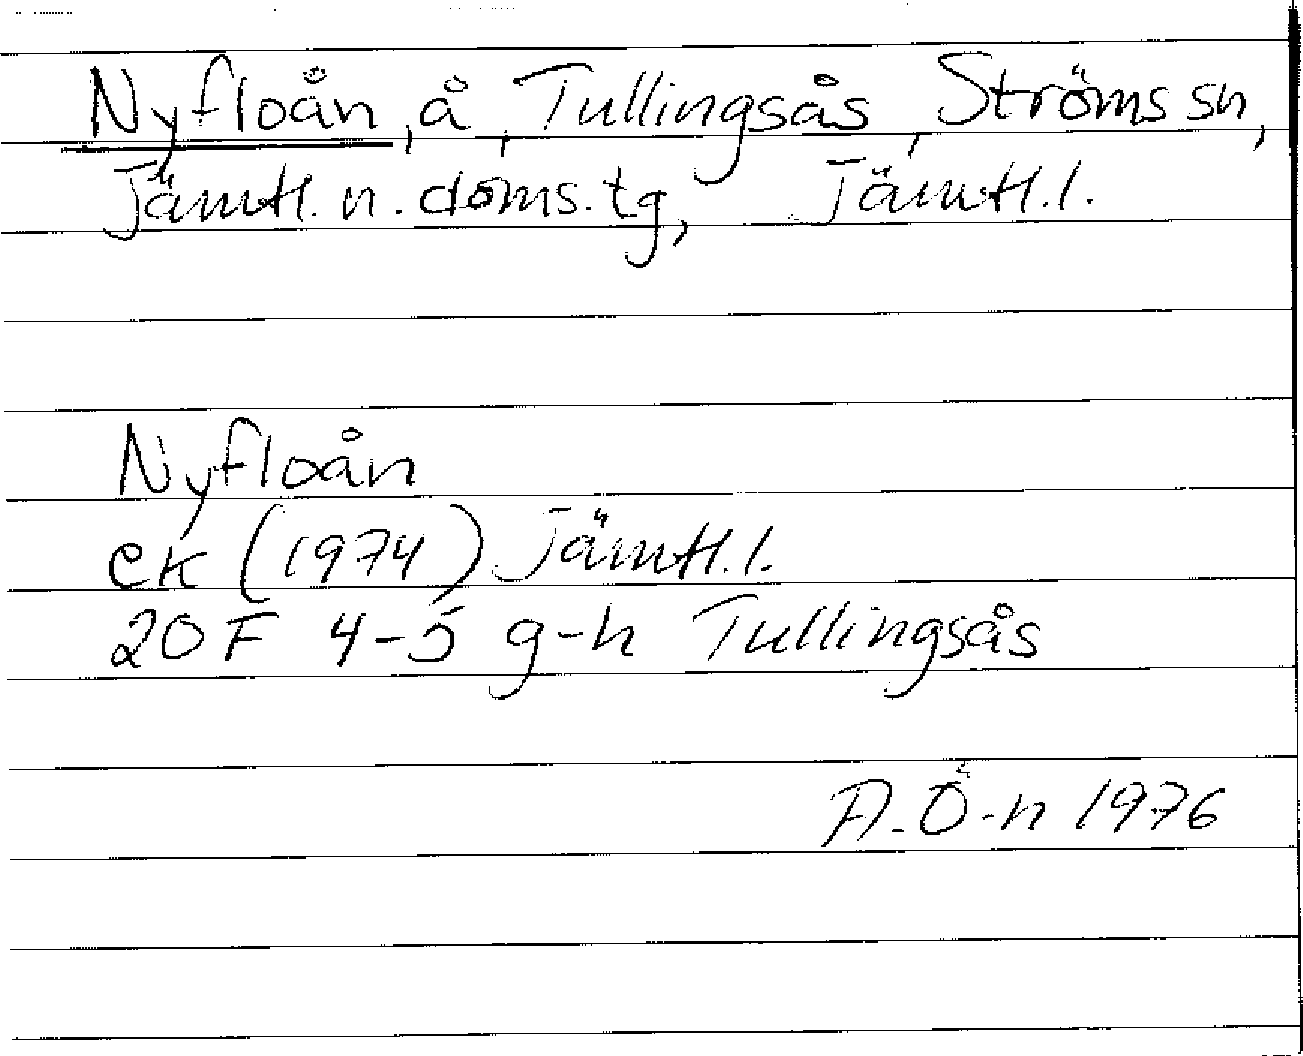 Nyfloån, å, Tullingsås, Ströms sn,
Jämtl. n. doms. tg, Jämtl. l.
Nyfloån
ek (1974) Jämtl. l.
20 F 4-5 g-h Tullingsås
A. Ö-n 1976